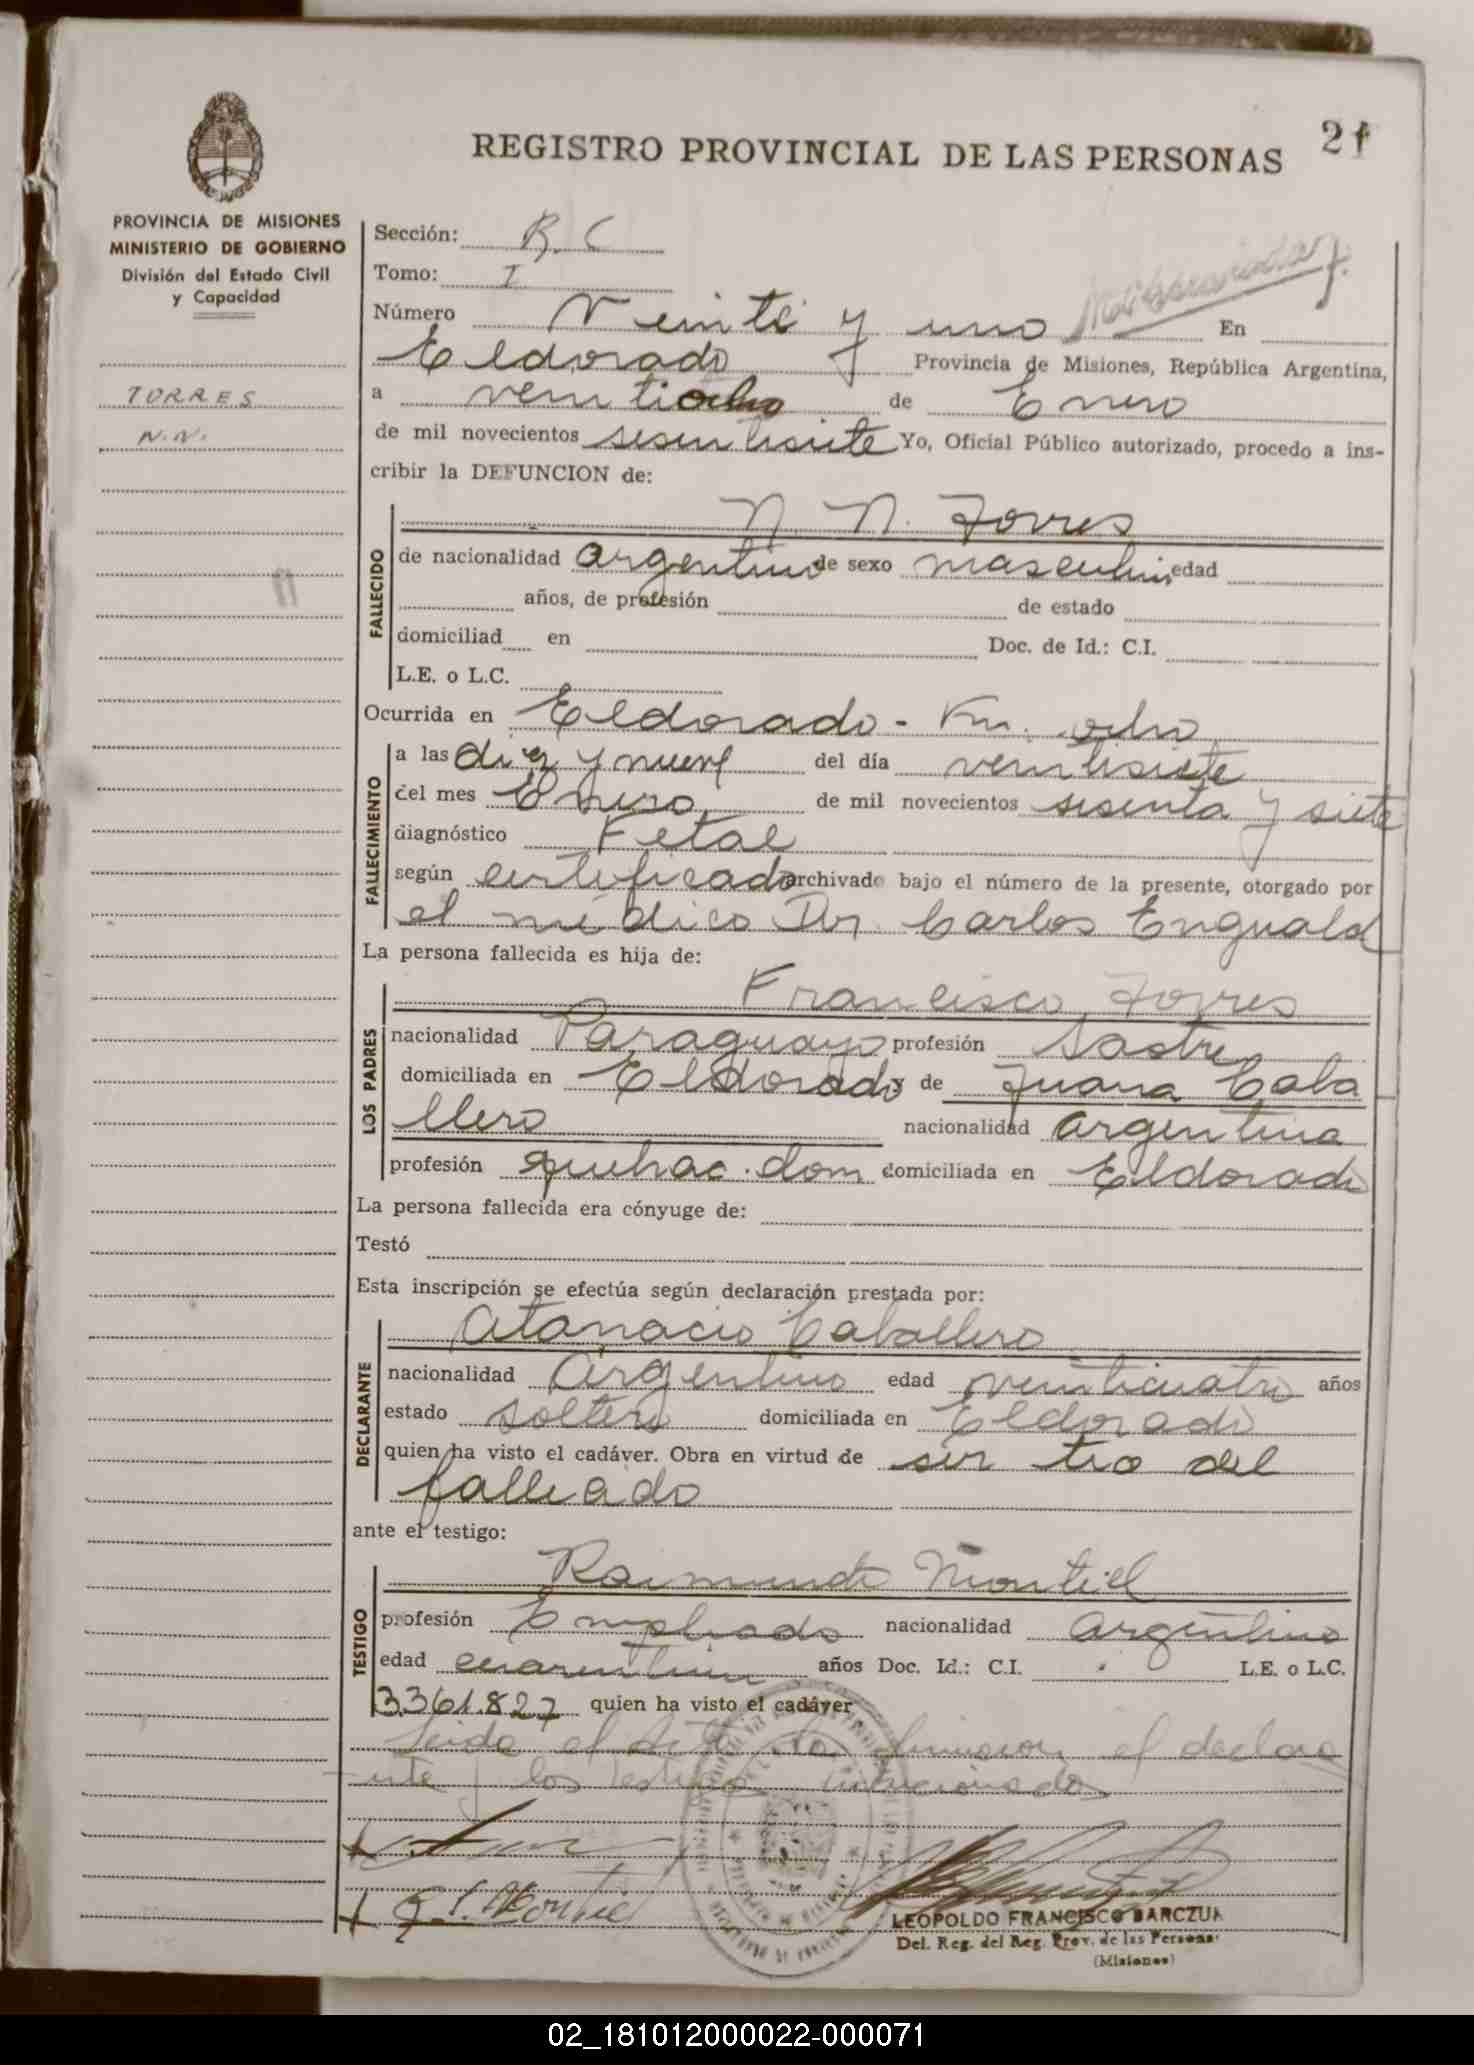 21
REGISTRO PROVINCIAL DE LAS PERSONAS
PROVINCIA DE MISIONES
MINISTERIO DE GOBIERNO
División del Estado Civil
y Capacidad
TORRES
N.N.
Sección: R. C
Tomo: I
Número Veinte y uno En
Eldorado Provincia de Misiones, República Argentina,
a veintiocho de Enero
de mil novecientos sesentisiete Yo, Oficial Público autorizado, procedo a ins-
cribir la DEFUNCION de:
FALLECIDO
N N. Torres
de nacionalidad argentino de sexo masculino edad
años, de profesión de estado
domiciliad en Doc. de Id.: C.I.
L.E. o L.C.
Ocurrida en Eldorado - Km. ocho
FALLECIMIENTO
a las diez y nueve del día ventisiete
del mes Enero de mil novecientos sesenta y siete
diagnóstico Fetal
según certificado archivado bajo el número de la presente, otorgado por
el médico Dr. Carlos Enguald
La persona fallecida es hija de:
LOS PADRES
Francisco Torres
nacionalidad Paraguayo profesión Sastre
domiciliada en Eldorado y de Juana Caba
llero nacionalidad argentina
profesión quehac. dom domiciliada en Eldorado
La persona fallecida era cónyuge de:
Testó
Esta inscripción se efectúa según declaración prestada por:
DECLARANTE
Atanacio Caballero
nacionalidad Argentino edad veinticuatro años
estado soltero domiciliada en Eldorado
quien ha visto el cadáver. Obra en virtud de ser tio del
fallecido
ante el testigo:
TESTIGO
Raimundo Montiel
profesión Empleado nacionalidad argentino
edad años Doc. Id.: C.I. L.E. o L.C.
3.361.827 quien ha visto el cadáver
Leida el Acta la firmaron el declara
nte y los testigos mencionados
LEOPOLDO FRANCISCO BARCZUK
Del. Reg. del Reg. Prov. de las Personas
(Misiones)
02_181012000022-000071